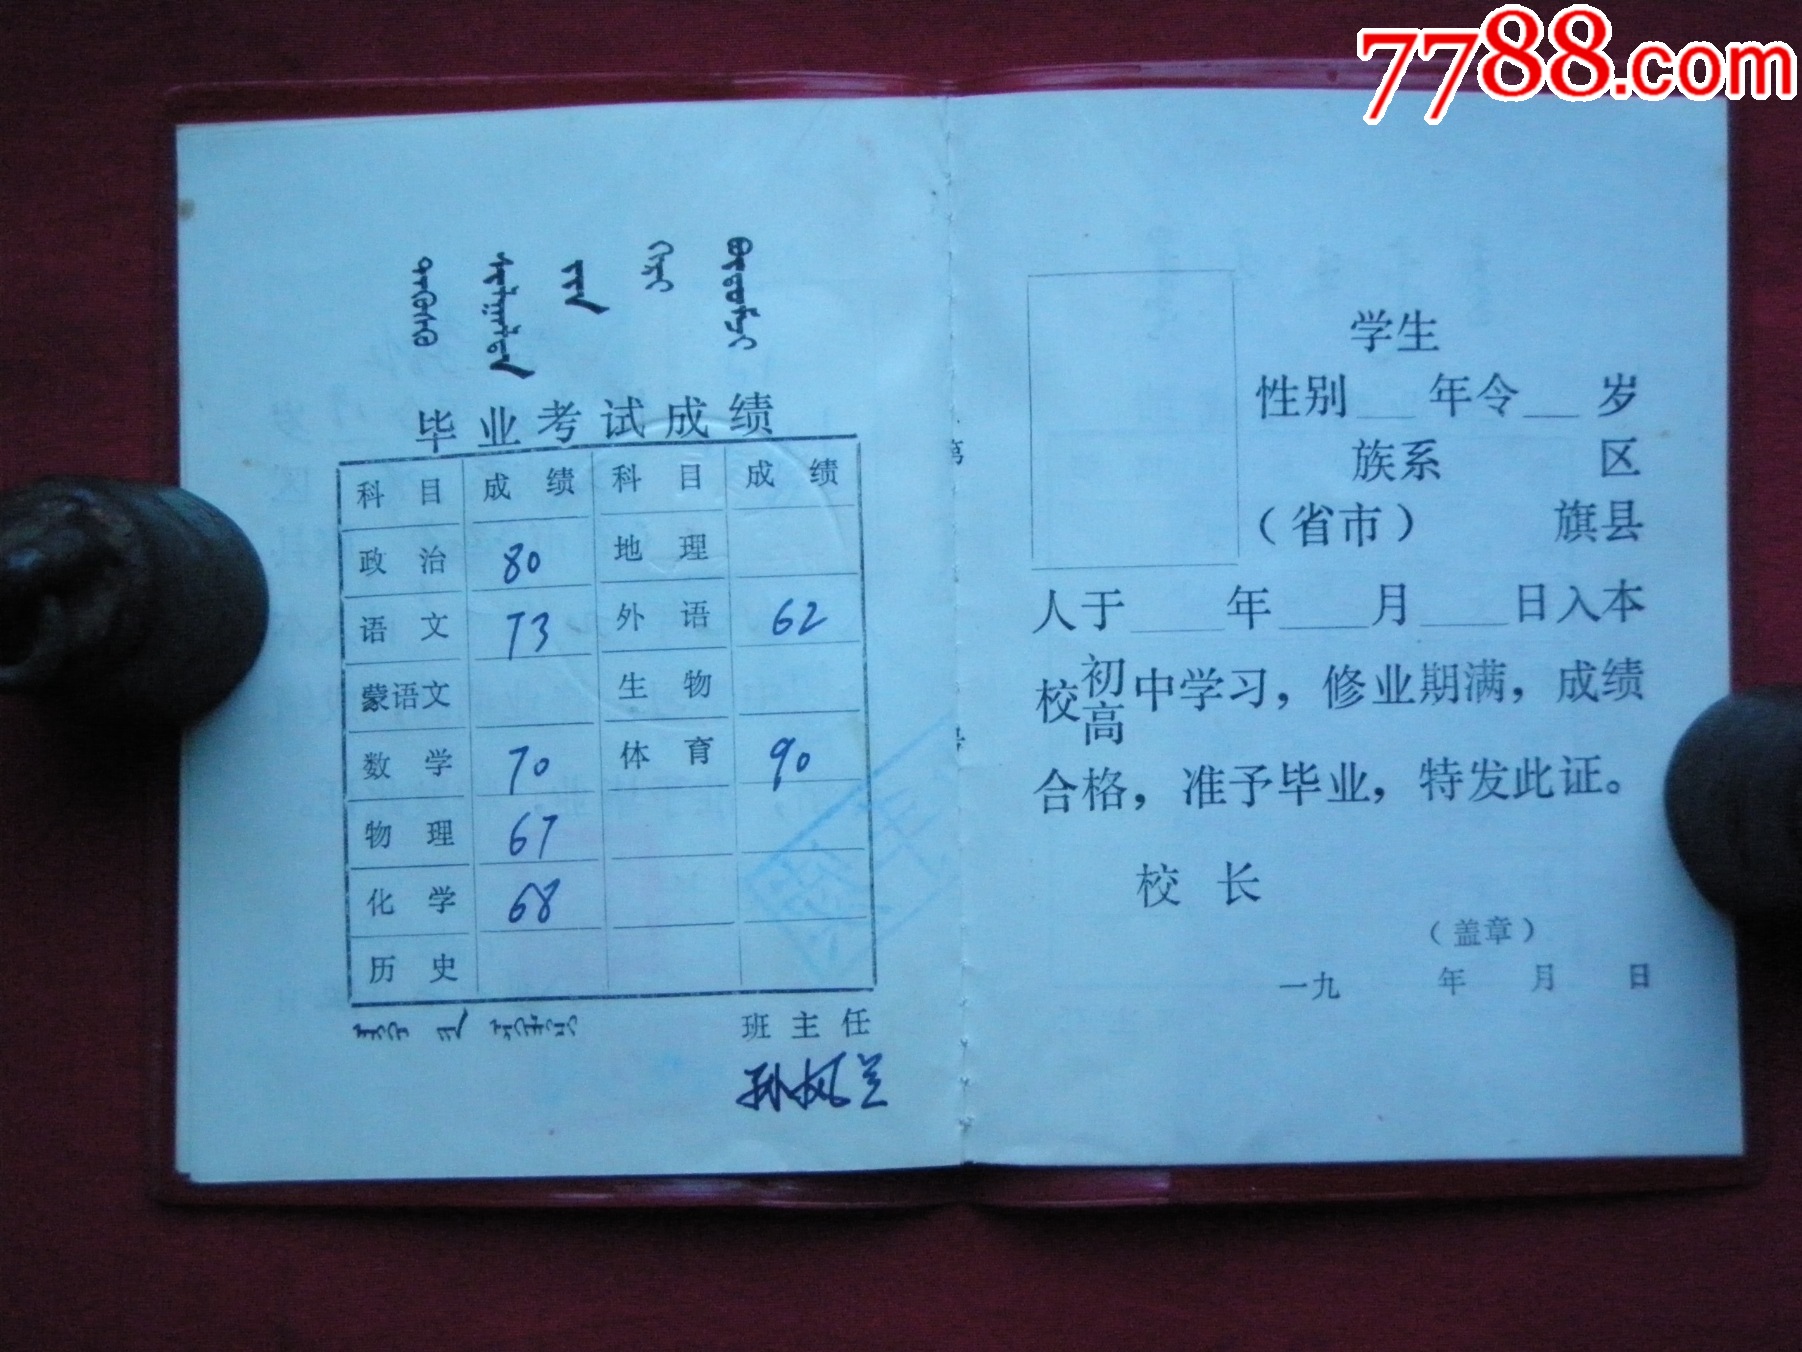 7788.com
毕业考试成绩
科目 成绩 科目 成绩
政治 80 地理
语文 73 外语 62
蒙语文 生物
数学 70 体育 90
物理 67
化学 68
历史
班主任
孙凤兰
第
号
学生
性别__年令__岁
族系 区
（省市） 旗县
人于____年____月____日入本
校初高中学习，修业期满，成绩
合格，准予毕业，特发此证。
校长
（盖章）
一九 年 月 日